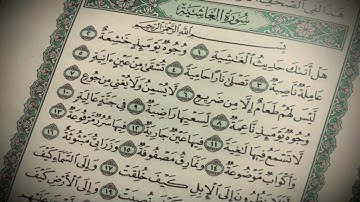 سُورَةُ الْغَاشِيَةِ
بِسْمِ اللَّهِ الرَّحْمَٰنِ الرَّحِيمِ
هَلْ أَتَىٰكَ حَدِيثُ الْغَٰشِيَةِ ١ وُجُوهٌ يَوْمَئِذٍ خَٰشِعَةٌ ٢
عَامِلَةٌ نَّاصِبَةٌ ٣ تَصْلَىٰ نَارًا حَامِيَةً ٤ تُسْقَىٰ مِنْ عَيْنٍ ءَانِيَةٍ ٥
لَّيْسَ لَهُمْ طَعَامٌ إِلَّا مِن ضَرِيعٍ ٦ لَّا يُسْمِنُ وَلَا يُغْنِي مِن جُوعٍ ٧
وُجُوهٌ يَوْمَئِذٍ نَّاعِمَةٌ ٨ لِّسَعْيِهَا رَاضِيَةٌ ٩ فِي جَنَّةٍ عَالِيَةٍ ١٠
لَّا تَسْمَعُ فِيهَا لَٰغِيَةً ١١ فِيهَا عَيْنٌ جَارِيَةٌ ١٢ فِيهَا سُرُرٌ مَّرْفُوعَةٌ ١٣
وَأَكْوَابٌ مَّوْضُوعَةٌ ١٤ وَنَمَارِقُ مَصْفُوفَةٌ ١٥ وَزَرَابِيُّ مَبْثُوثَةٌ ١٦
أَفَلَا يَنظُرُونَ إِلَى الْإِبِلِ كَيْفَ خُلِقَتْ ١٧ وَإِلَى السَّمَاءِ كَيْفَ
نُصِبَتْ ١٩ وَإِلَى الْأَرْضِ كَيْفَ